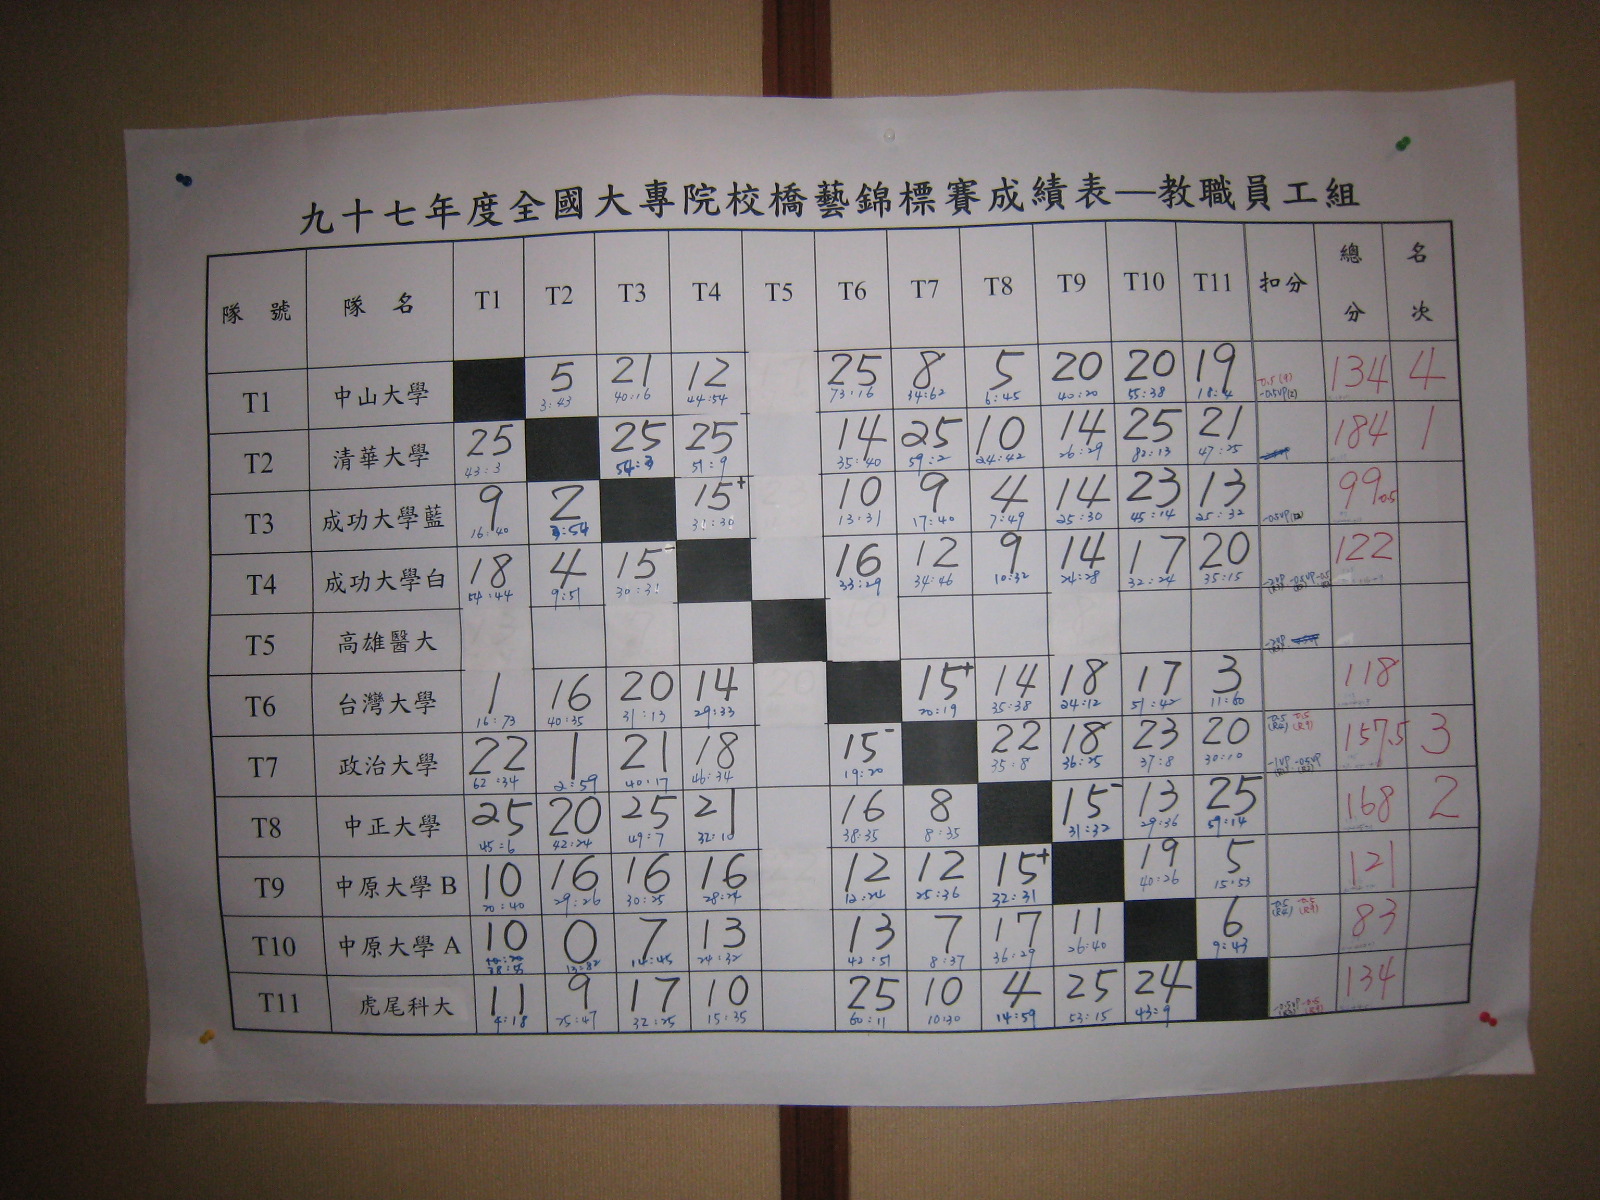 九十七年度全國大專院校橋藝錦標賽成績表—教職員工組
隊號 隊名 T1 T2 T3 T4 T5 T6 T7 T8 T9 T10 T11 扣分 總分 名次
T1 中山大學 5 21 12 25 8 5 20 20 19 134 4
3:43 40:16 44:54 73:16 34:62 6:45 40:20 55:38 18:4
T2 清華大學 25 25 25 14 25 10 14 25 21 184 1
43:3 54:3 51:9 35:40 59:2 24:42 26:29 82:13 47:25
T3 成功大學藍 9 2 15+ 10 9 4 14 23 13 99
16:40 3:54 31:30 13:31 17:40 7:49 25:30 45:14 25:32
T4 成功大學白 18 4 15- 16 12 9 14 17 20 122
54:44 9:51 30:31 33:29 34:46 10:32 24:28 32:24 35:15
T5 高雄醫大
T6 台灣大學 1 16 20 14 15+ 14 18 17 3 118
16:73 40:35 31:13 29:33 20:19 35:38 24:12 51:42 11:60
T7 政治大學 22 1 21 18 15- 22 18 23 20 157.5 3
62:34 2:59 40:17 46:34 19:20 35:8 36:25 37:8 30:10
T8 中正大學 25 20 25 21 16 8 15- 13 25 168 2
45:6 42:24 49:7 32:10 38:35 8:35 31:32 29:36 59:14
T9 中原大學B 10 16 16 16 12 12 15+ 19 5 121
20:40 29:26 30:25 28:24 12:24 25:36 32:31 40:26 15:53
T10 中原大學A 10 0 7 13 13 7 17 11 6 83
38:55 13:82 14:45 24:32 42:51 8:37 36:29 26:40 9:43
T11 虎尾科大 11 9 17 10 25 10 4 25 24 134
4:18 25:47 32:25 15:35 60:11 10:30 14:59 53:15 43:9